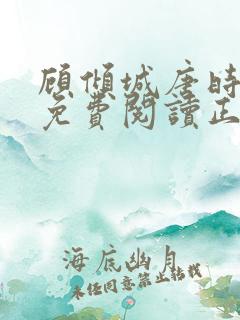 顾倾城唐时
免費閱讀正
海底幽月
未经同意禁止转载